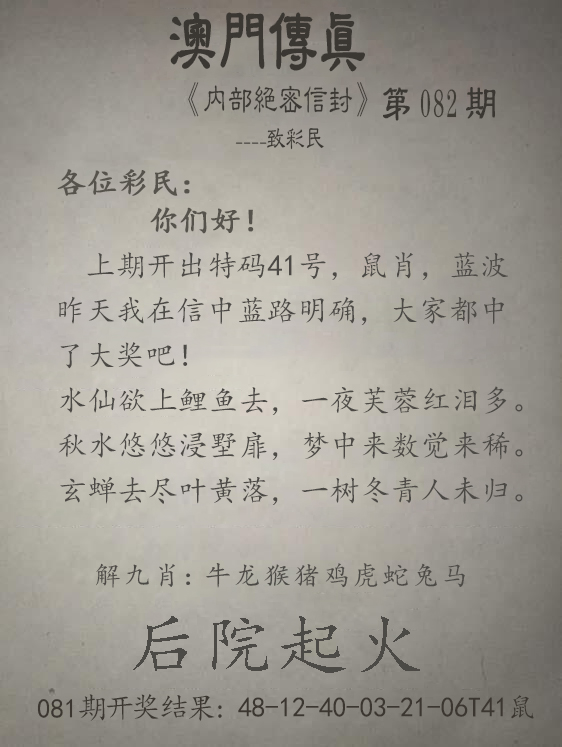 澳門傳眞
《内部絕密信封》第082期
----致彩民
各位彩民：
你们好！
上期开出特码41号，鼠肖，蓝波
昨天我在信中蓝路明确，大家都中
了大奖吧！
水仙欲上鲤鱼去，一夜芙蓉红泪多。
秋水悠悠浸墅扉，梦中来数觉来稀。
玄蝉去尽叶黄落，一树冬青人未归。
解九肖：牛龙猴猪鸡虎蛇兔马
后院起火
081期开奖结果：48-12-40-03-21-06T41鼠